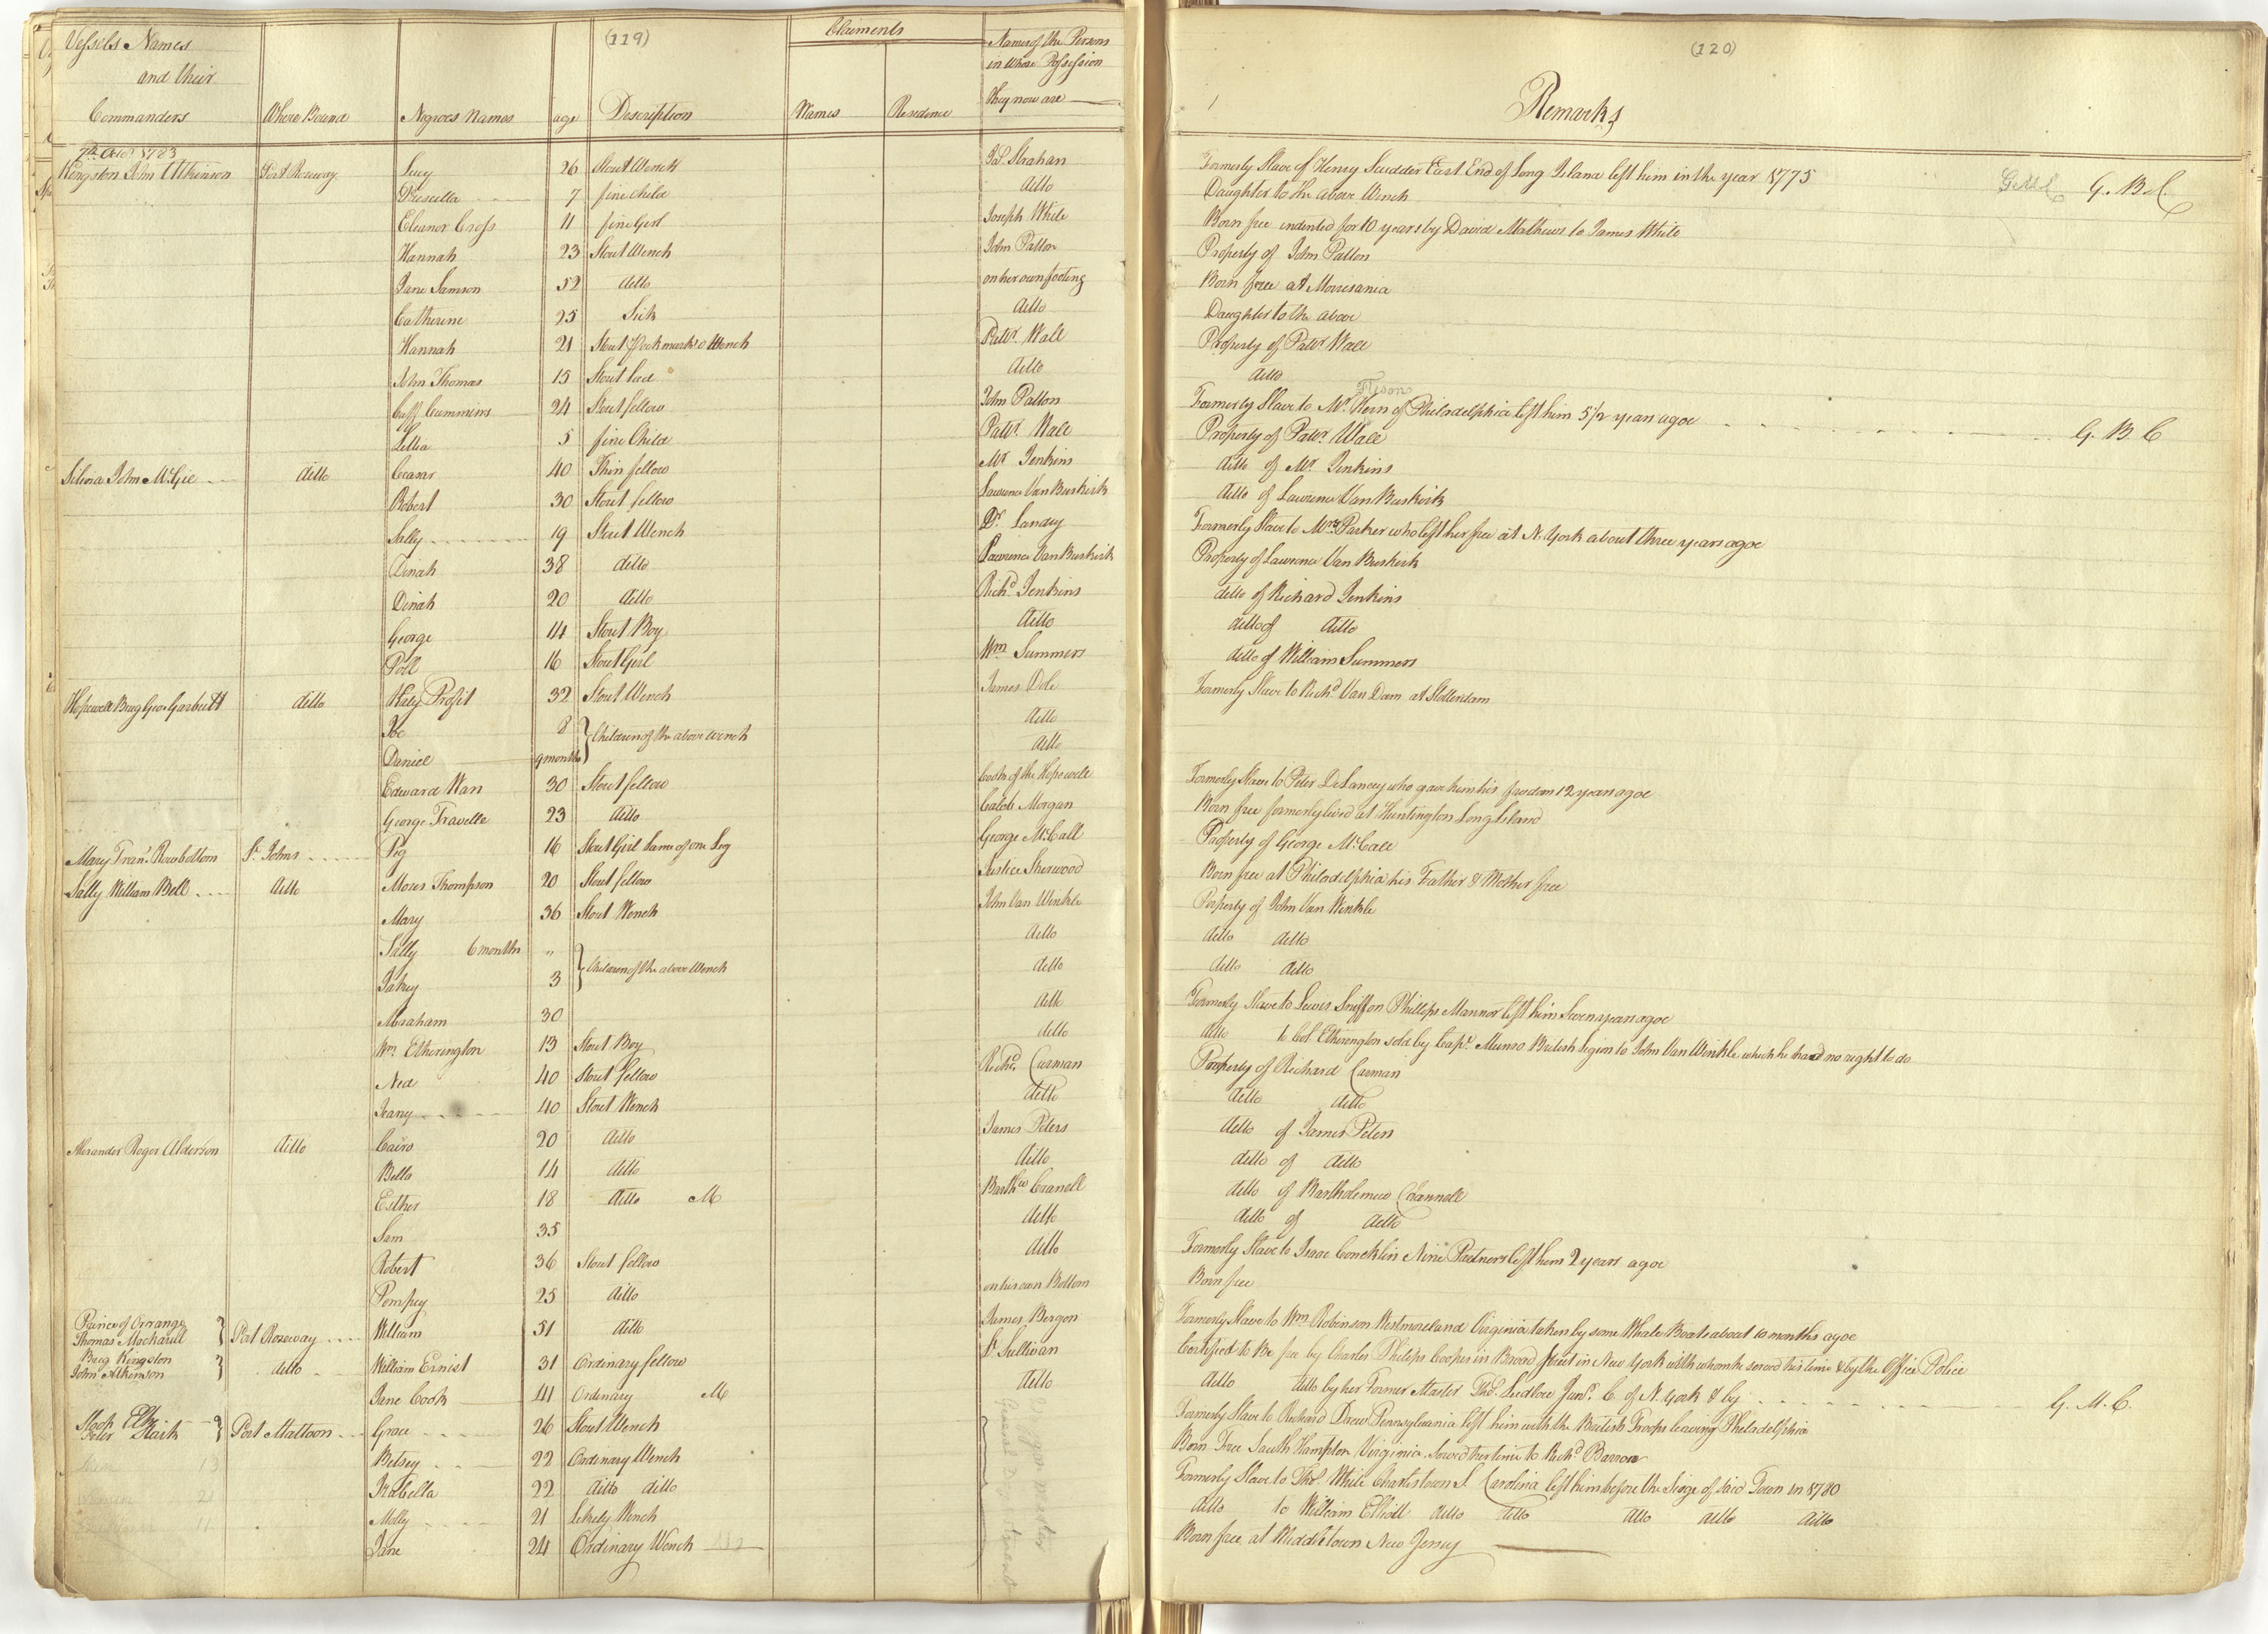 (119)
Vessels Names and their Commanders | Where Bound | Negroes Names | age | Description | Claiments Names | Residence | Names of the Persons in whose Possession they now are
7th Octr. 1783
Kingston John Atkinson | Port Roseway | Lucy | 26 | Stout Wench | Jas. Strahan
Priscilla | 7 | fine Child | ditto
Eleanor Cross | 11 | fine Girl | Joseph White
Hannah | 23 | Stout Wench | John Patton
Jane Samson | 52 | ditto | on her own footing
Catherine | 25 | Sick | ditto
Hannah | 21 | Stout Pock marked Wench | Patk. Wall
John Thomas | 15 | Stout lad | ditto
Cuff Cummins | 24 | Stout fellow | John Patton
Lettia | 5 | fine Child | Patk. Wall
Silvia John McGie | ditto | Ceasar | 40 | Thin fellow | Mr. Jenkins
Robert | 30 | Stout fellow | Lawrence Van Buskirk
Sally | 19 | Stout Wench | Dr.
Dinah | 38 | ditto | Lawrence Van Buskirk
Dinah | 20 | ditto | Richd. Jenkins
George | 14 | Stout Boy | ditto
Poll | 16 | Stout Girl | Wm. Summers
Hopewell Brig Geo. Garbutt | ditto | Katy Profit | 32 | Stout Wench | James Dole
Joe | 8 | ditto
Daniel | 9 months | } Children of the above wench | ditto
Edward Wan | 30 | Stout fellow | Cook of the Hopewell
George Travelle | 23 | ditto | Caleb Morgan
Mary Fran. Rowbottom | St. Johns | Peg | 16 | Stout Girl lame of one Leg | George McCall
Sally William Bell | ditto | Moses Thompson | 20 | Stout fellow | Justice Sherwood
Mary | 36 | Stout Wench | John Van Winkle
Sally 6 months | " | ditto
Jakey | 3 | } Children of the above Wench | ditto
Abraham | 30 | ditto
Wm. Etherington | 13 | Stout Boy | ditto
Ned | 40 | Stout fellow | Richd. Carman
Jeany | 40 | Stout Wench | ditto
Alexander Roger Alderson | ditto | Cairo | 20 | ditto | James Peters
Bella | 14 | ditto | ditto
Esther | 18 | ditto M | Barthw. Cranell
Sam | 35 | ditto
Robert | 36 | Stout fellow | ditto
Pompey | 25 | ditto | on his own Bottom
Prince of Orrange Thomas | } Port Roseway | William | 51 | ditto | James Bergon
Brig Kingston John Atkinson | } ditto | William Ernist | 31 | Ordinary fellow | St. Sullivan
Jane Cook | 41 | Ordinary M | ditto
Sloop Elk Peter | } Port Mattoon | Grace | 26 | Stout Wench
Betsey | 22 | Ordinary Wench
Isabella | 22 | ditto ditto
Molly | 21 | Likely Wench
Jane | 24 | Ordinary Wench
Waggon master General Department
(120)
Remarks
Formerly Slave of Henry Scudder East End of Long Island left him in the year 1775 G. B. C.
Daughter to the above Wench
Born free indented for 10 years by David Mathews to James White
Property of John Patton
Born free at Morrisania
Daughter to the above
Property of Patk. Wall
ditto
Formerly Slave to Mr. Hern of Philadelphia left him 5 1/2 years agoe G. B. C
Property of Patk. Wall
ditto of Mr. Jenkins
ditto of Lawrence Van Buskirk
Formerly Slave to Mrs. Parker who left her free at N. York about three years agoe
Property of Lawrence Van Buskirk
ditto of Richard Jenkins
ditto of ditto
ditto of William Summers
Formerly Slave to Richd. Van Dam at
Formerly Slave to Peter DeLancey who gave him his freedom 12 years agoe
Born free formerly lived at Huntington Long Island
Property of George McCall
Born free at Philadelphia his Father & Mother free
Property of John Van Winkle
ditto ditto
ditto ditto
Formerly Slave to Lewis Sniffon Phillips Mannor left him Seven years agoe
ditto to Col. Etherington sold by Capt. Munro British legion to John Van Winkle which he had no right to do
Property of Richard Carman
ditto ditto
ditto of James Peters
ditto of ditto
ditto of Bartholemew Crannell
ditto of ditto
Formerly Slave to Isaac Concklin Nine Partners left him 2 years agoe
Born free
Formerly Slave to Wm. Robinson Westmoreland Virginia taken by some Whale Boats about 10 months agoe
Certified to Be free by Charles Philips Cooper in Broad Street in New York with whom he served his time & by the Office Police
ditto ditto by her Former Master Thos. Ludlow Junr. C. of N. York & by G. M. C.
Formerly Slave to Richard Drew Pennsylvania left him with the British Troops leaving Philadelphia
Born Free South Hampton Virginia Served her time to Richd. Barron
Formerly Slave to Thos. White Charlestown S. Carolina left him before the Siege of said Town in 1780
ditto to William Elliott ditto ditto ditto ditto ditto
Born free at Middletown New Jersey